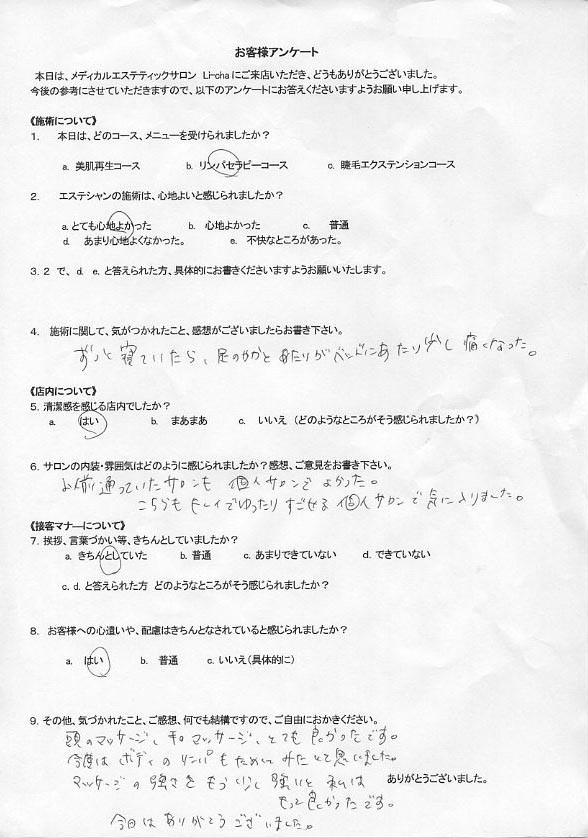 お客様アンケート
本日は、メディカルエステティックサロン Li-cha にご来店いただき、どうもありがとうございました。
今後の参考にさせていただきますので、以下のアンケートにお答えくださいますようお願い申し上げます。
《施術について》
1. 本日は、どのコース、メニューを受けられましたか？
a. 美肌再生コース b. リンパセラピーコース c. 睫毛エクステンションコース
2. エステシャンの施術は、心地よいと感じられましたか？
a. とても心地よかった b. 心地よかった c. 普通
d. あまり心地よくなかった。 e. 不快なところがあった。
3. 2 で、d. e. と答えられた方、具体的にお書きくださいますようお願いいたします。
4. 施術に関して、気がつかれたこと、感想がございましたらお書き下さい。
ずっと寝ていたら、足のかかとあたりがベッドにあたり少し痛くなった。
《店内について》
5. 清潔感を感じる店内でしたか？
a. はい b. まあまあ c. いいえ （どのようなところがそう感じられましたか？）
6. サロンの内装・雰囲気はどのように感じられましたか？感想、ご意見をお書き下さい。
以前通っていたサロンも 個人サロンで よかった。
こちらも キレイでゆったり すごせる 個人サロンで 気に入りました。
《接客マナーについて》
7. 挨拶、言葉づかい等、きちんとしていましたか？
a. きちんとしていた b. 普通 c. あまりできていない d. できていない
c. d. と答えられた方 どのようなところがそう感じられましたか？
8. お客様への心遣いや、配慮はきちんとなされていると感じられましたか？
a. はい b. 普通 c. いいえ（具体的に）
9. その他、気づかれたこと、ご感想、何でも結構ですので、ご自由におかきください。
頭のマッサージ、手のマッサージ、とても良かったです。
今度は ボディの リンパもためしてみたいと思いました。
マッサージの 強さを もう少し 強いと 私は
ありがとうございました。
もっと良かったです。
今日は ありがとう ございました。